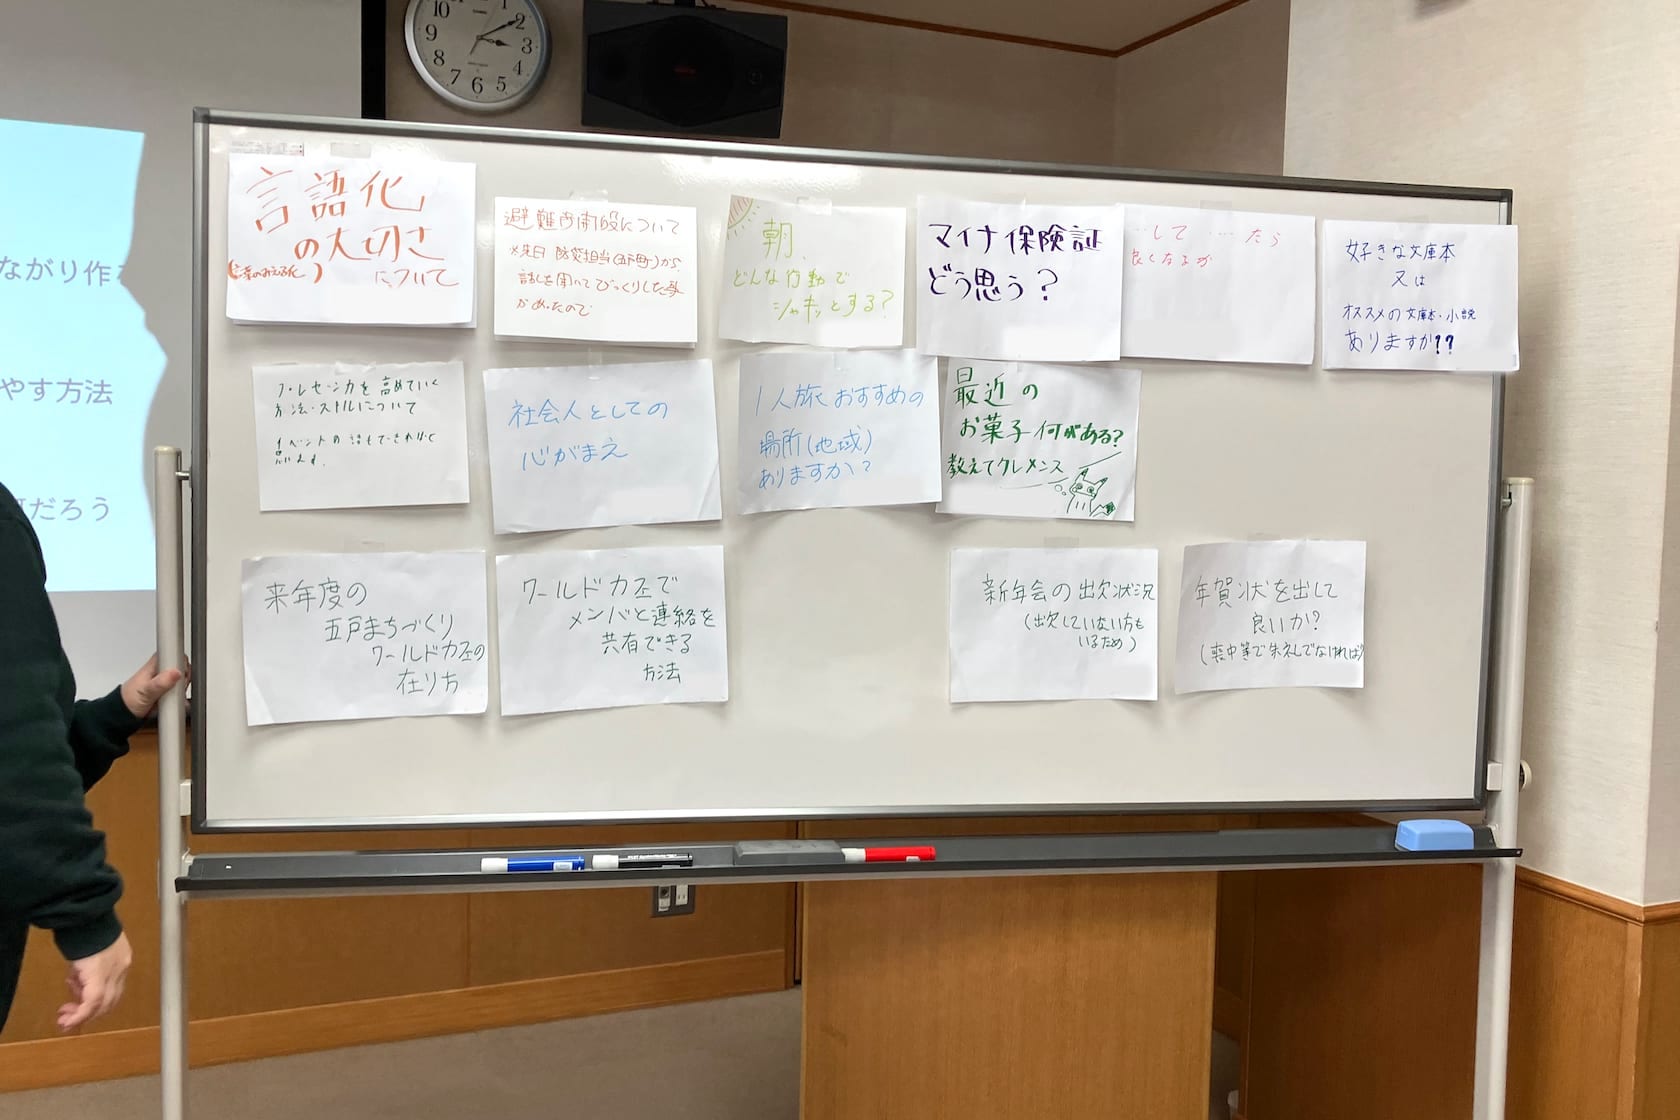 ながり作
やす方法
だろう
言語化
の大切さ
について
避難所開設について
※先日 防災担当(五戸町)から
話しを聞いてびっくりした事
があったので
朝、
どんな行動で
シャキッとする?
マイナ保険証
どう思う?
…して ……たら
良くなるか
好きな文庫本
又は
オススメの文庫本・小説
ありますか??
プレゼン力を高めていく
方法・スキルについて
イベントの話もできればと
思います。
社会人としての
心がまえ
1人旅おすすめの
場所(地域)
ありますか?
最近の
お菓子何がある?
教えてクレメンス
来年度の
五戸まちづくり
ワールドカフェの
在り方
ワールドカフェで
メンバと連絡を
共有できる
方法
新年会の出欠状況
(出欠していない方も
いるため)
年賀状を出して
良いか?
(喪中等で失礼でなければ)
10 1 2 3 4 5 6 7 8 9